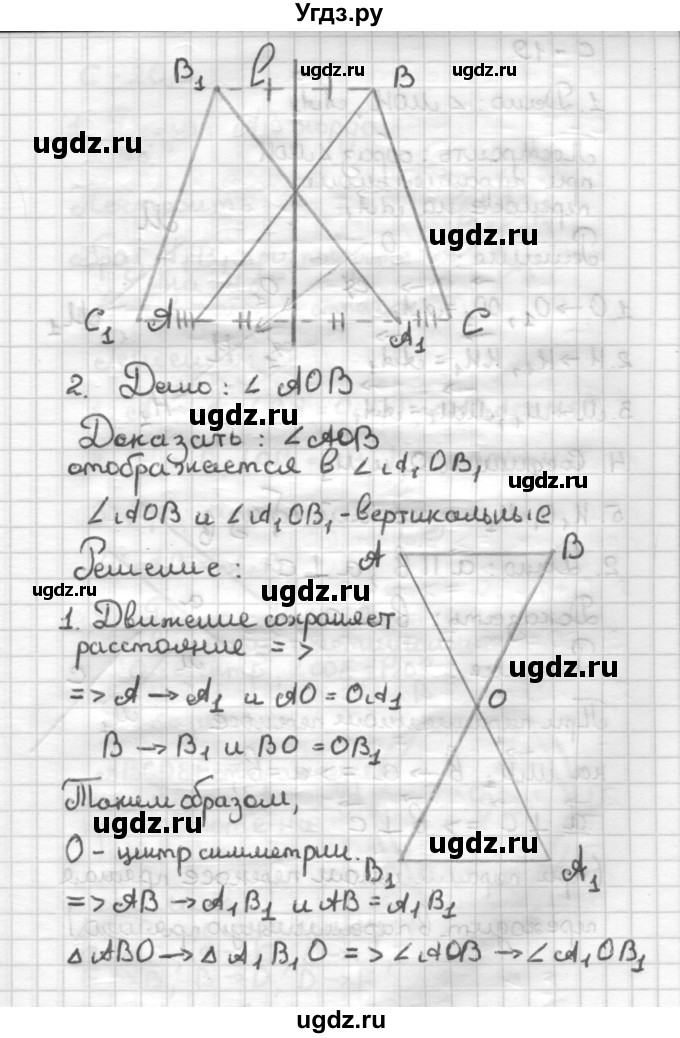 Угдз.ру
B₁ l B
ugdz.ru
ugdz.ru
ugdz.ru
ugdz.ru
C₁ A A₁ C
2. Дано: ∠ AOB
ugdz.ru
Доказать: ∠AOB
отображается в ∠A₁OB₁
ugdz.ru
∠AOB и ∠A₁OB₁ - вертикальные
A B
Решение:
ugdz.ru
ugdz.ru
1. Движение сохраняет
расстояние =>
ugdz.ru
=> A → A₁ и AO = OA₁
O
B → B₁ и BO = OB₁
Таким образом,
ugdz.ru
ugdz.ru
O - центр симметрии.
B₁ A₁
=> AB → A₁B₁ и AB = A₁B₁
△ ABO → △ A₁B₁O => ∠AOB → ∠A₁OB₁
ugdz.ru
ugdz.ru